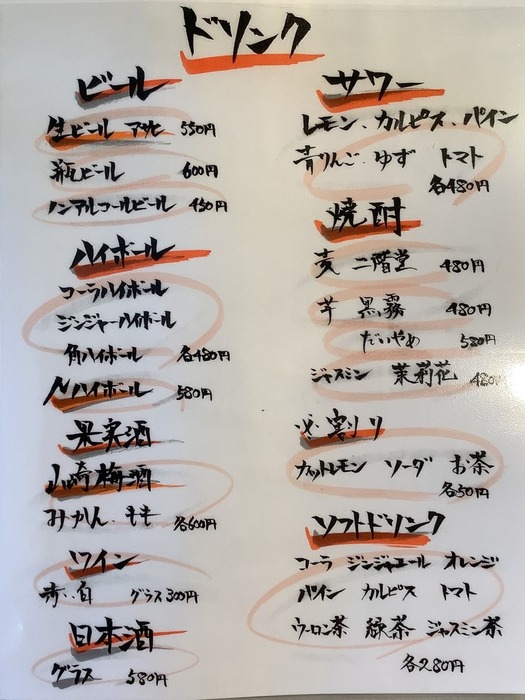 ドリンク
ビール
生ビール アサヒ 550円
瓶ビール 600円
ノンアルコールビール 450円
ハイボール
コーラハイボール
ジンジャーハイボール
角ハイボール 各480円
ハイボール 580円
果実酒
山崎梅酒
みかん、もも 各600円
ワイン
赤、白 グラス300円
日本酒
グラス 580円
サワー
レモン、カルピス、パイン
青りんご、ゆず トマト
各480円
焼酎
麦 二階堂 480円
芋 黒霧 480円
だいやめ 580円
ジャスミン 茉莉花 480円
割り
カットレモン ソーダ お茶
各50円
ソフトドリンク
コーラ ジンジャエール オレンジ
パイン カルピス トマト
ウーロン茶 緑茶 ジャスミン茶
各280円